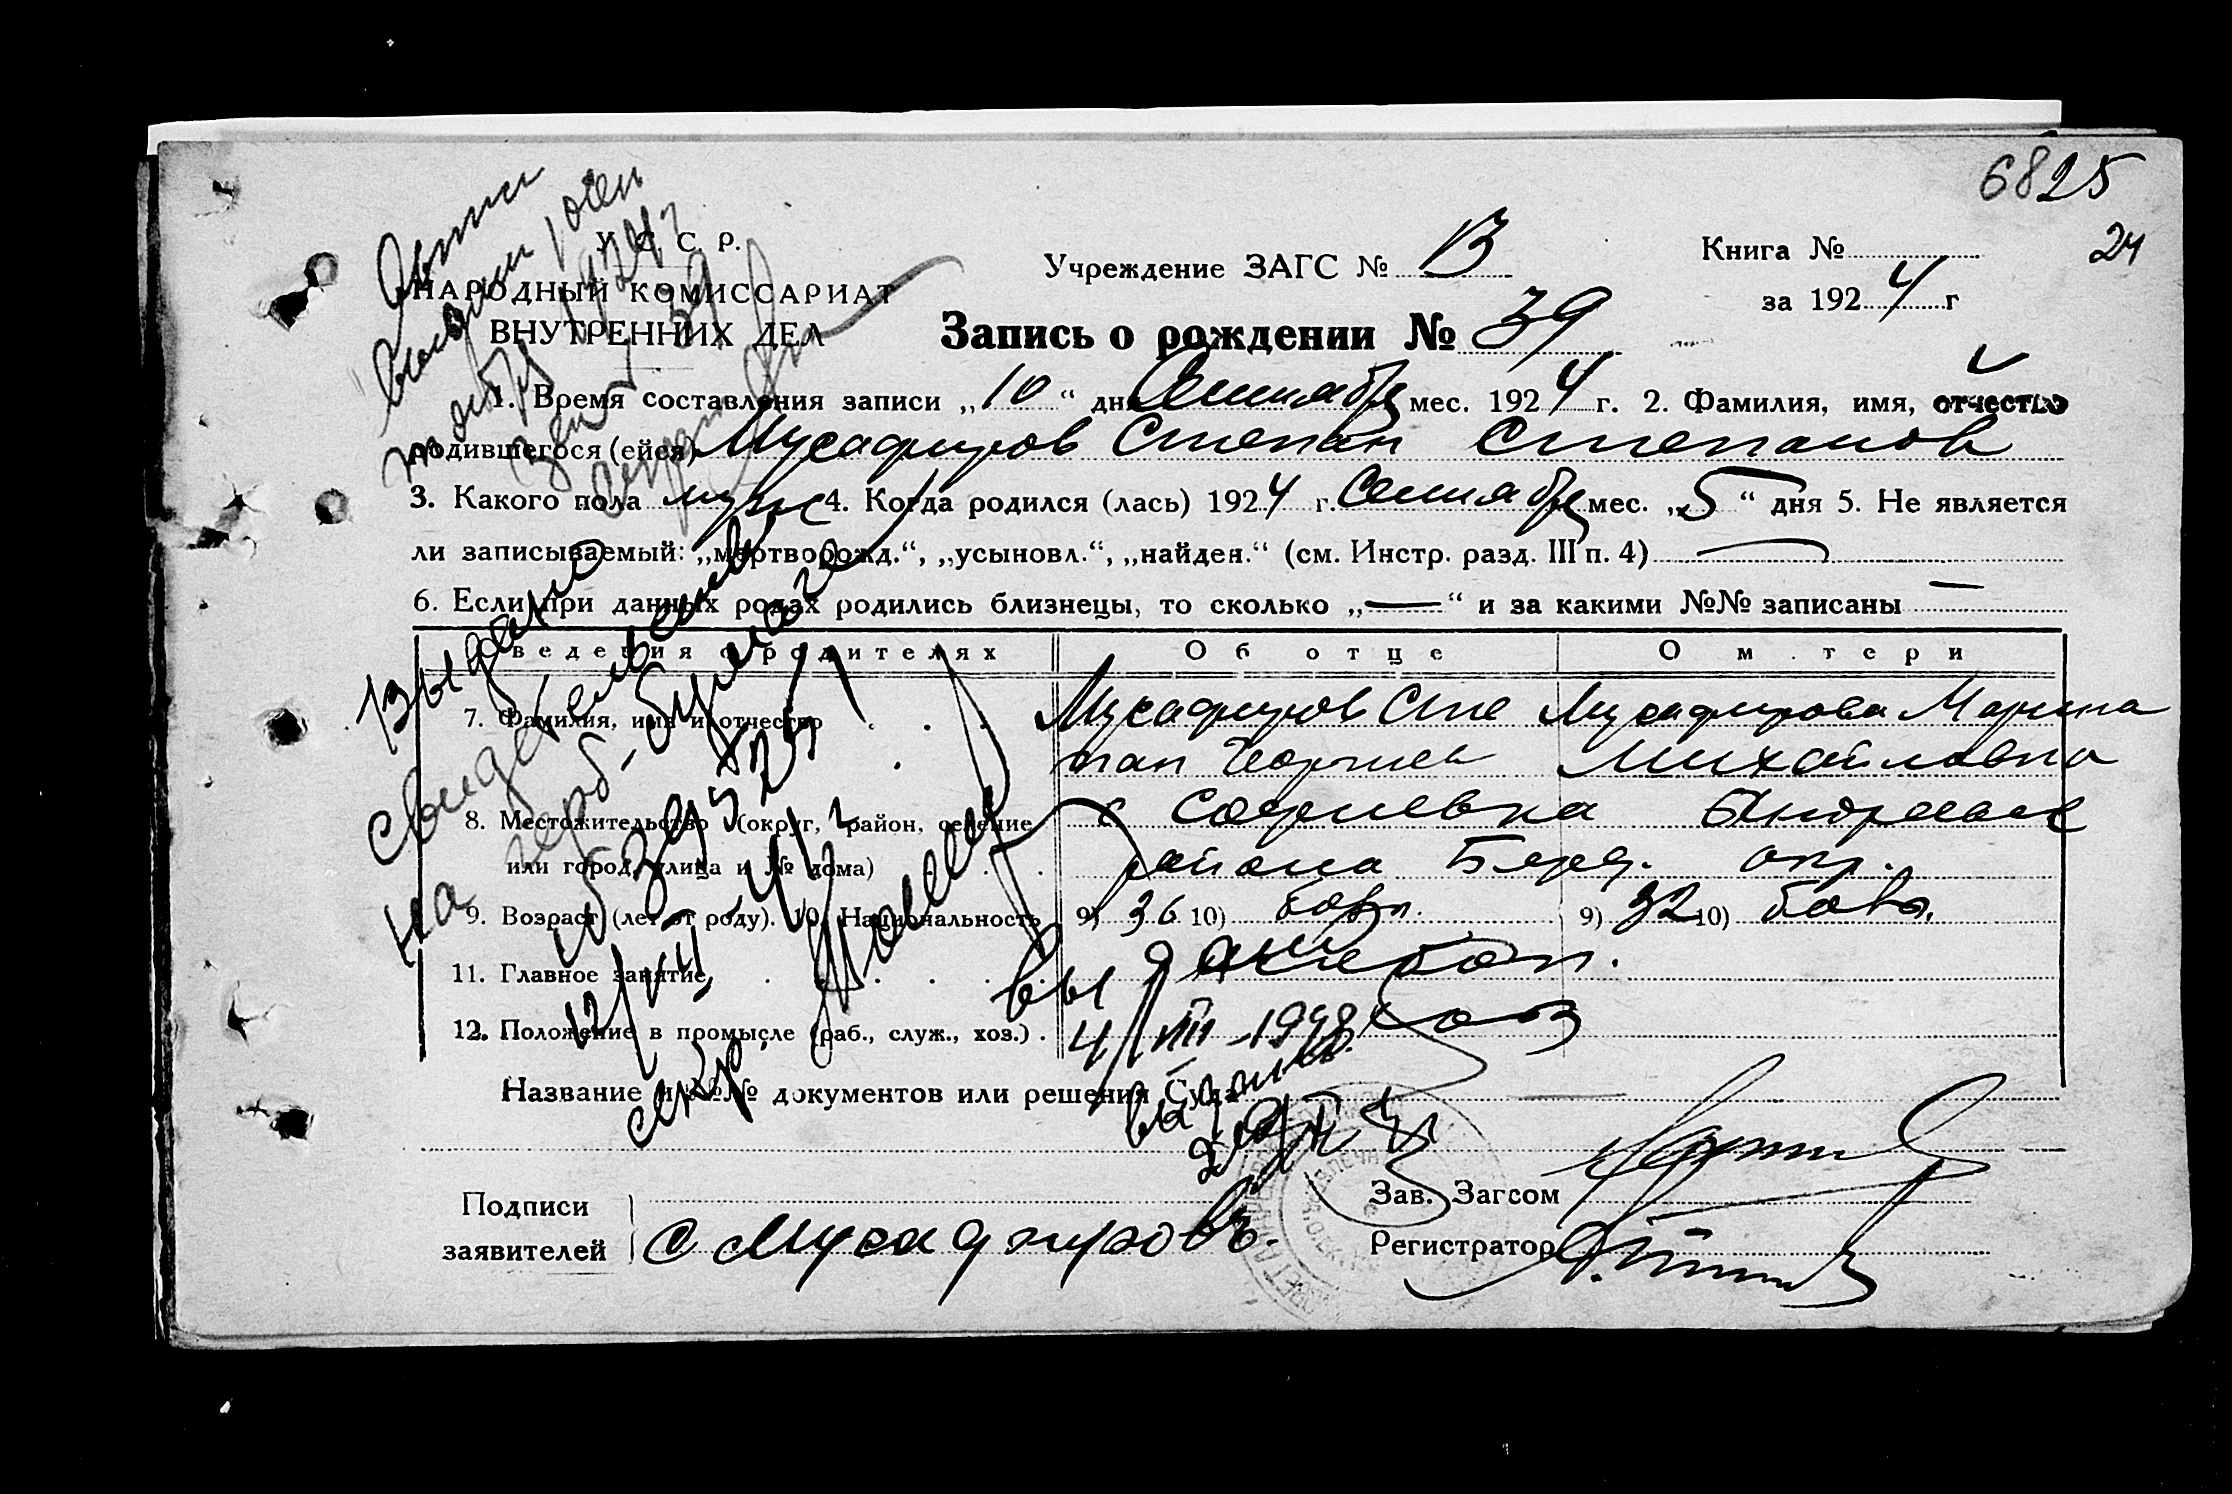 6825
24
У. С. С. Р.
НАРОДНЫЙ КОМИССАРИАТ
ВНУТРЕННИХ ДЕЛ
Учреждение ЗАГС № 13
Книга №
за 1924 г
Запись о рождении № 39
1. Время составления записи „10“ дня Сентября мес. 1924 г. 2. Фамилия, имя, отчество
родившегося (ейся) Мусафиров Степан Степанов
3. Какого пола муж 4. Когда родился (лась) 1924 г. Сентября мес. „5“ дня 5. Не является
ли записываемый: „мертворожд.“, „усыновл.“, „найден.“ (см. Инстр. разд. III п. 4) —
6. Если при данных родах родились близнецы, то сколько „—“ и за какими №№ записаны —
Сведения о родителях Об отце О матери
7. Фамилия, имя и отчество Мусафиров Сте Мусафирова Марина
пан Георгиев Михайловна
8. Местожительство (округ, район, селение с Софиевка Андреевск
или город, улица и № дома) района Берд. окр.
9. Возраст (лет от роду). 10. Национальность 9) 36 10) болг. 9) 32 10) болг.
11. Главное занятие
12. Положение в промысле (раб., служ., хоз.) хоз
Название и №№ документов или решения Суда
Подписи
заявителей С Мусафировъ.
Зав. Загсом
Регистратор
Выдано
свидетельство
на герб. бумаге